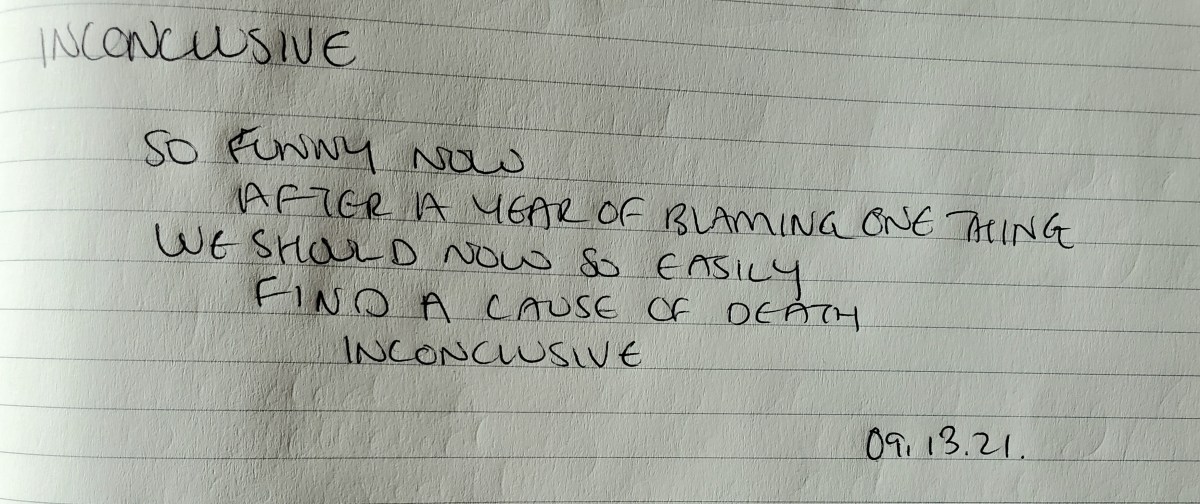 INCONCLUSIVE
SO FUNNY NOW
AFTER A YEAR OF BLAMING ONE THING
WE SHOULD NOW SO EASILY
FIND A CAUSE OF DEATH
INCONCLUSIVE
09.13.21.